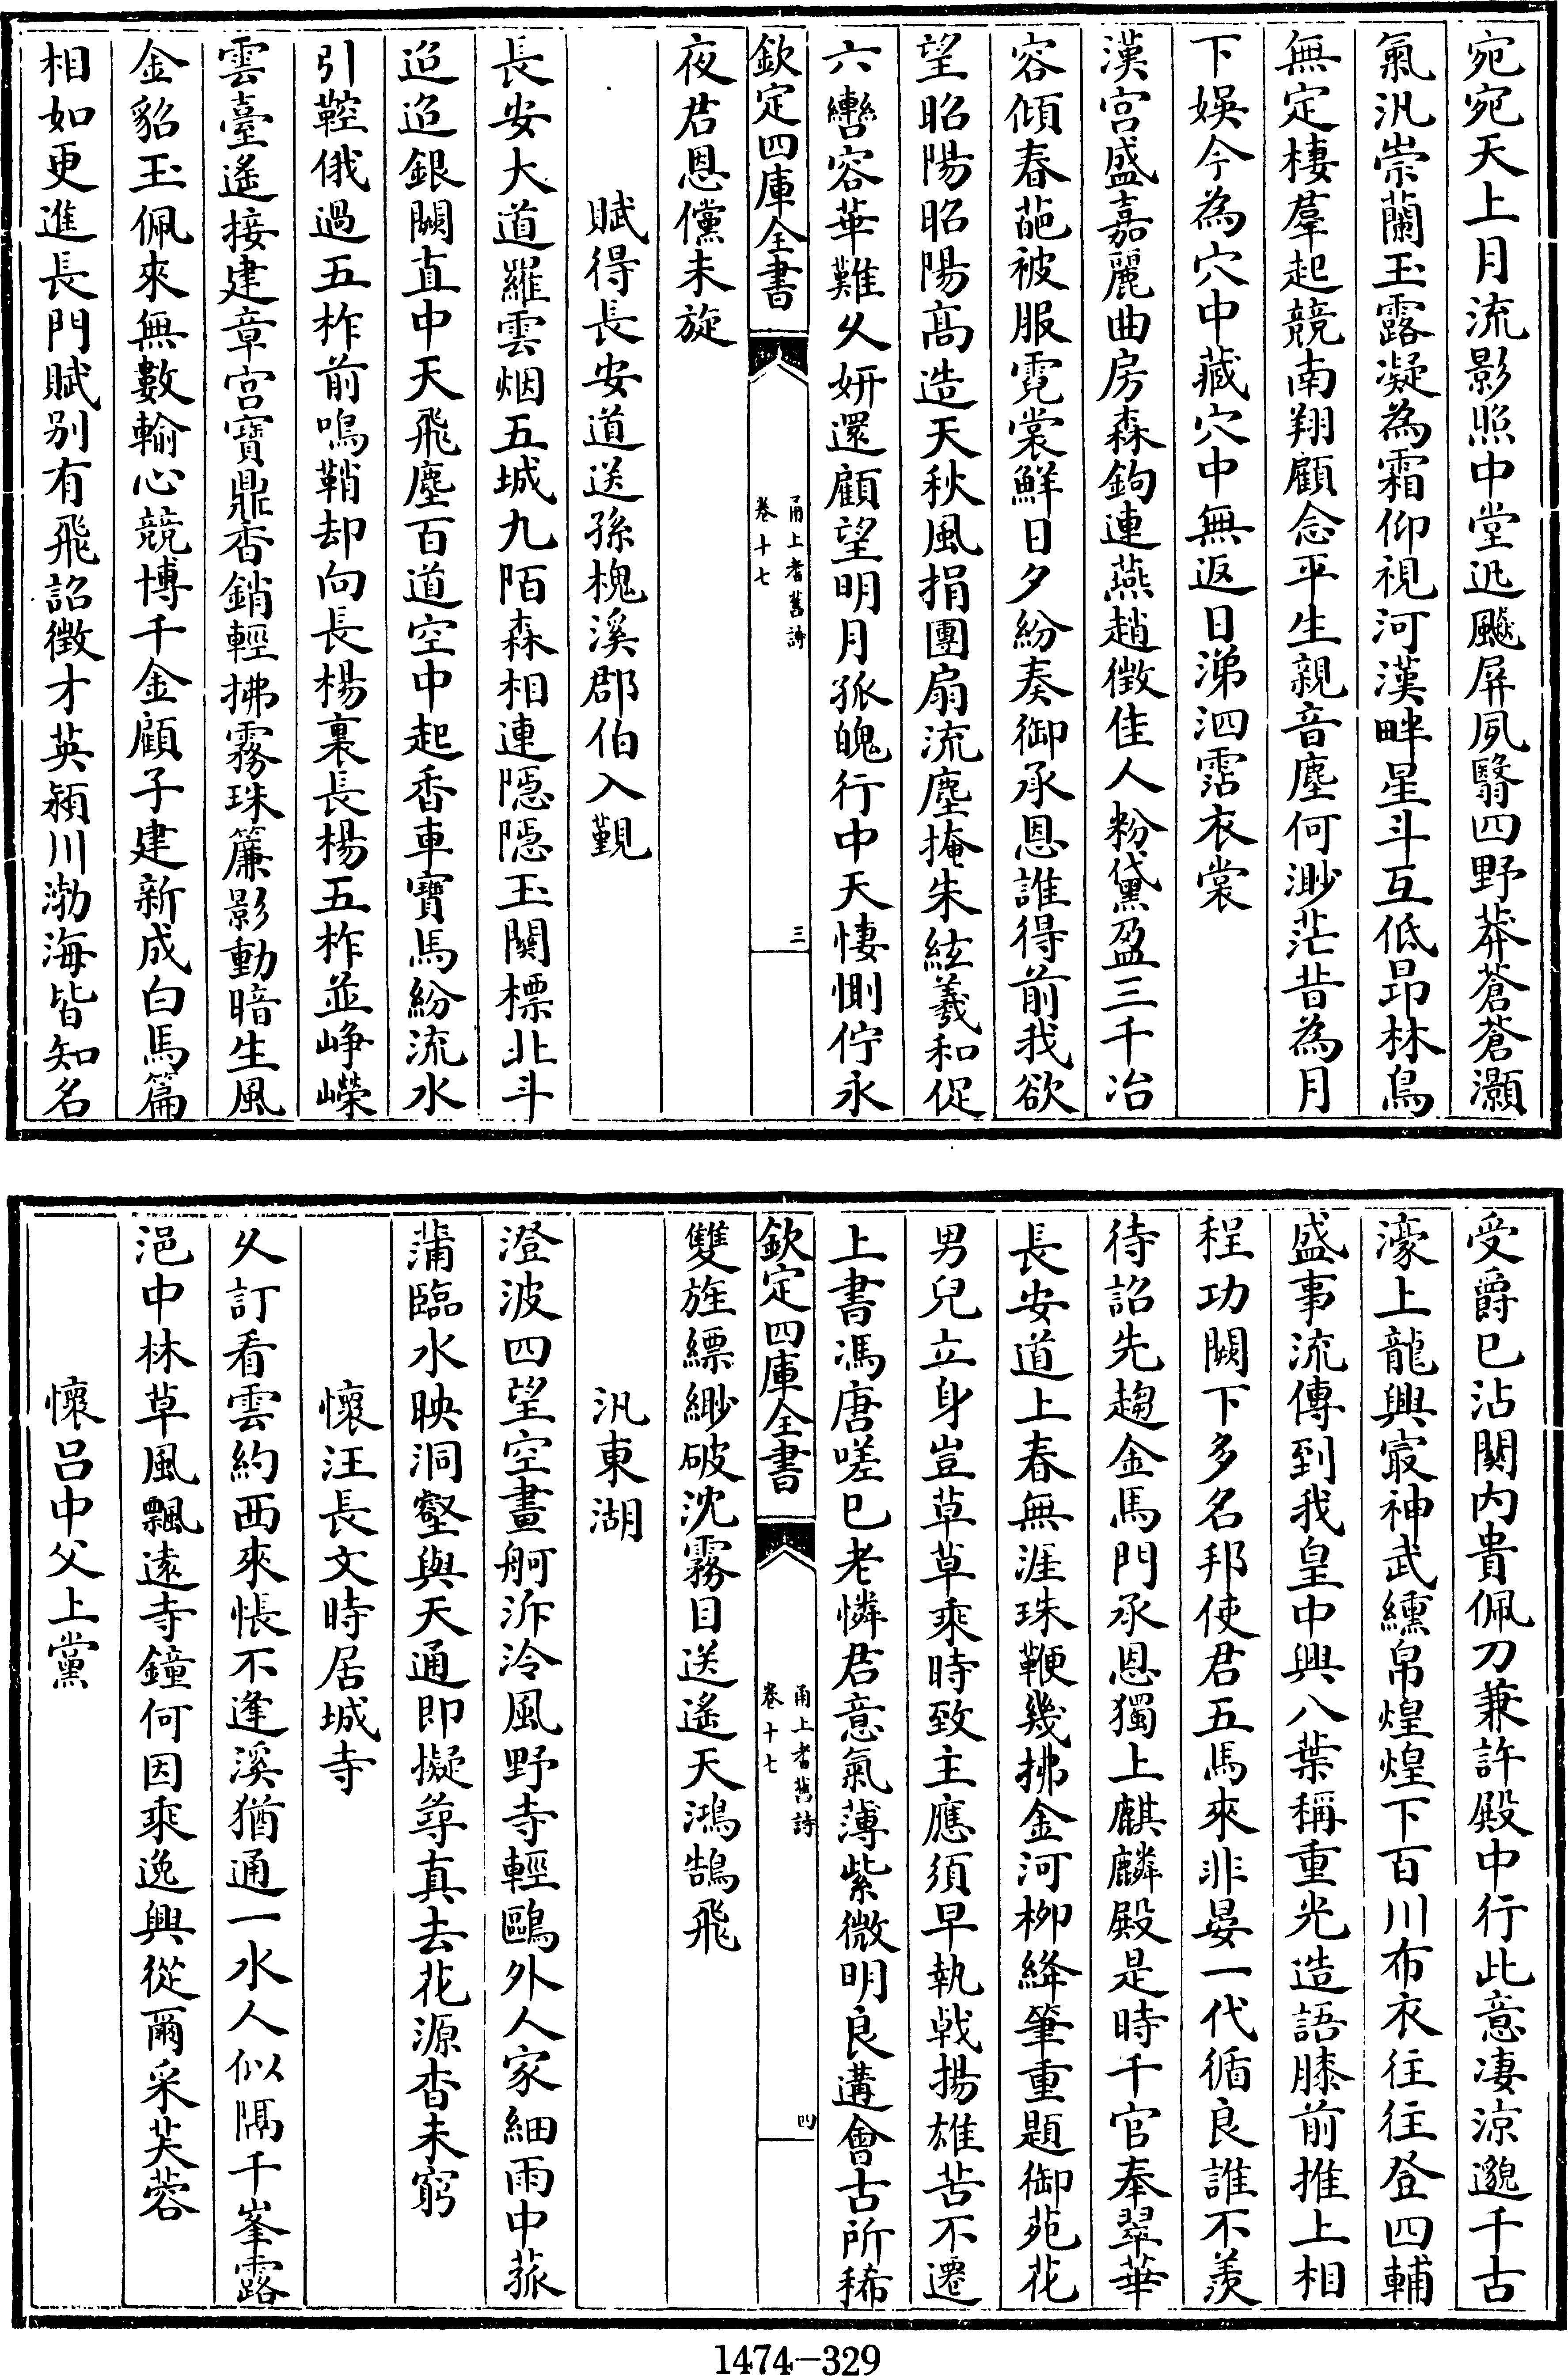 宛宛天上月流影照中堂迅飈屏夙翳四野莽蒼蒼灝
氣汎崇蘭玉露凝為霜仰視河漢畔星斗互低昂林鳥
無定棲羣起競南翔顧念平生親音塵何渺茫昔為月
下娛今為穴中藏穴中無返日涕泗霑衣裳
漢宮盛嘉麗曲房森鉤連燕趙徵佳人粉黛盈三千冶
容傾春葩被服霓裳鮮日夕紛奏御承恩誰得前我欲
望昭陽昭陽高造天秋風捐團扇流塵掩朱絃羲和促
六轡容華難久妍還顧望明月孤魄行中天悽惻佇永
欽定四庫全書
甬上耆舊詩
卷十七
三
夜君恩儻未旋
賦得長安道送孫槐溪郡伯入覲
長安大道羅雲烟五城九陌森相連隱隱玉關標北斗
迢迢銀闕直中天飛塵百道空中起香車寶馬紛流水
引鞚俄過五柞前鳴鞘却向長楊裏長楊五柞並崢嶸
雲臺遙接建章宮寶鼎香銷輕拂霧珠簾影動暗生風
金貂玉佩來無數輸心競博千金顧子建新成白馬篇
相如更進長門賦別有飛詔徵才英潁川渤海皆知名
受爵已沾關內貴佩刀兼許殿中行此意淒涼邈千古
濠上龍興冣神武纁帛煌煌下百川布衣往往登四輔
盛事流傳到我皇中興八葉稱重光造語膝前推上相
程功闕下多名邦使君五馬來非晏一代循良誰不羨
待詔先趨金馬門承恩獨上麒麟殿是時千官奉翠華
長安道上春無涯珠鞭幾拂金河柳絳筆重題御苑花
男兒立身豈草草乘時致主應須早執戟揚雄苦不遷
上書馮唐嗟已老憐君意氣薄紫微明良遘會古所稀
欽定四庫全書
甬上耆舊詩
卷十七
四
雙旌縹緲破沈霧目送遙天鴻鵠飛
汎東湖
澄波四望空畫舸泝泠風野寺輕鷗外人家細雨中菰
蒲臨水映洞壑與天通即擬尋真去花源杳未窮
懷汪長文時居城寺
久訂看雲約西來悵不逢溪猶通一水人似隔千峯露
浥中林草風飄遠寺鐘何因乘逸興從爾采芙蓉
懷呂中父上黨
1474-329